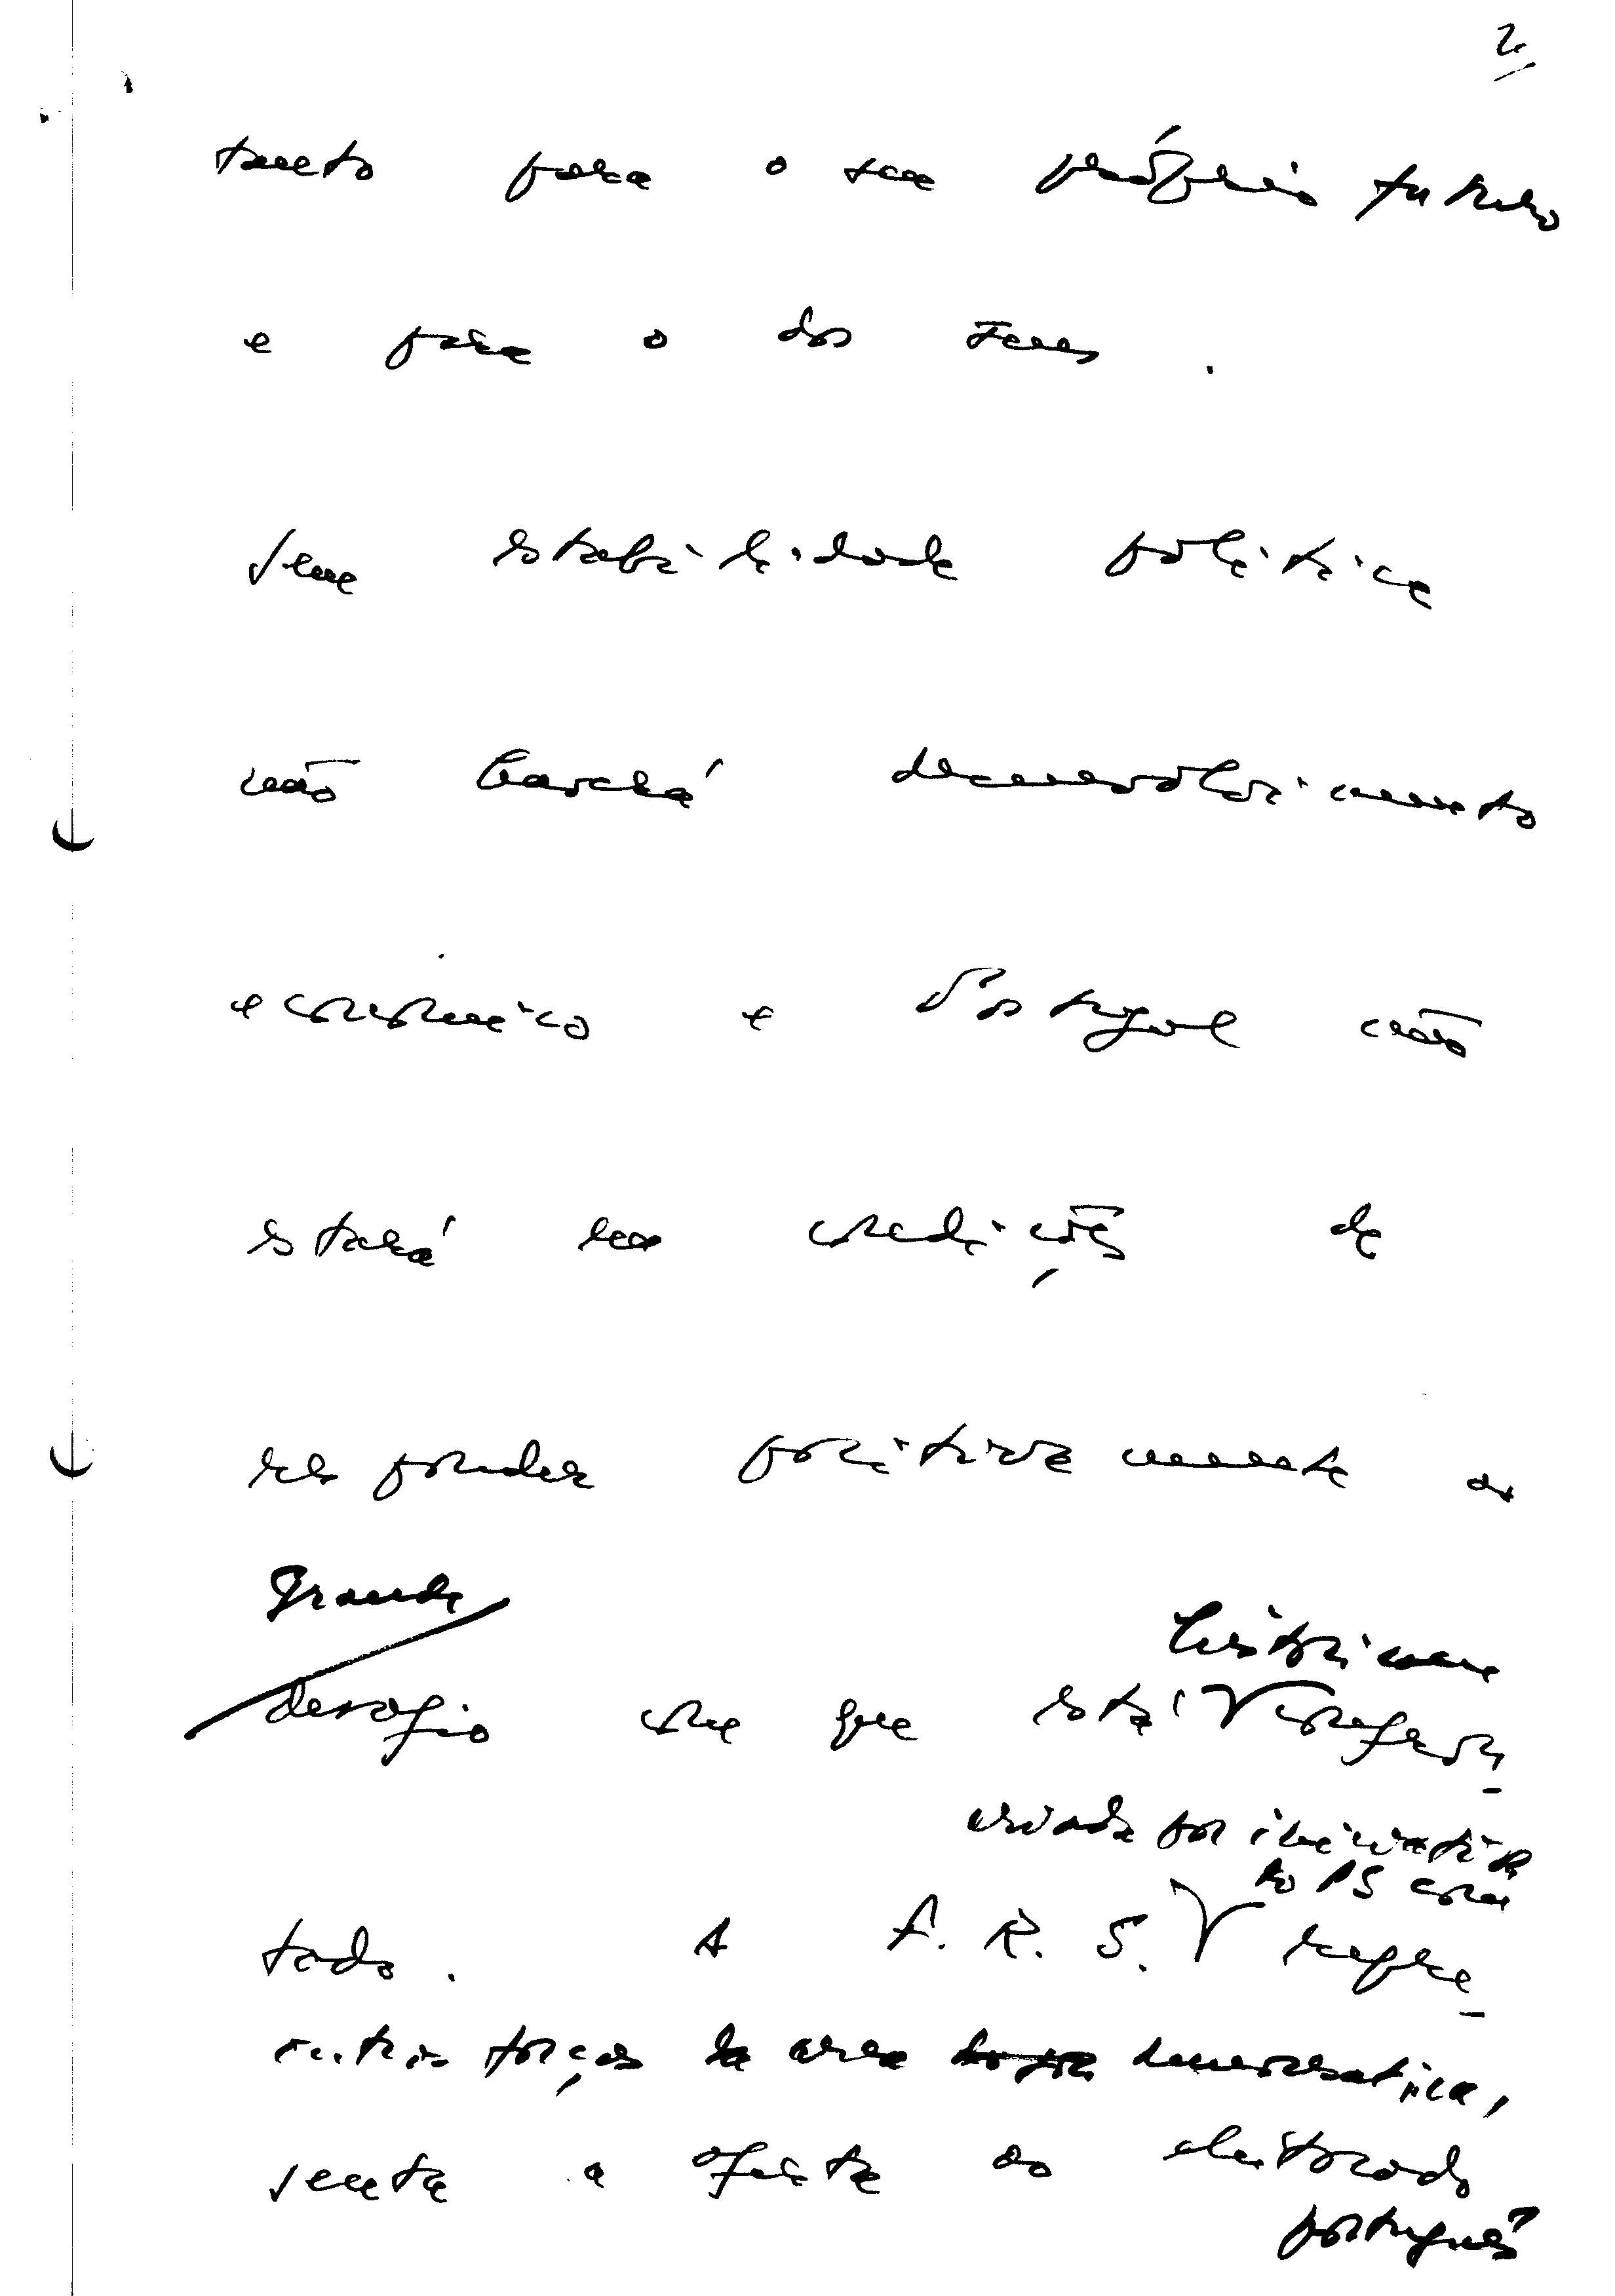 2.
tanto para o seu próprio futuro
e para o dos seus.
Sem estabilidade política
não haverá desenvolvimento
económico e Portugal não
estará em condições de
responder positivamente ao
grande
historicamente
desafio com que está confron-
criada por iniciativa
do PS com
tado. A F. R. S. repre-
outras forças da area democratica,
senta a oferta ao eleitorado
português